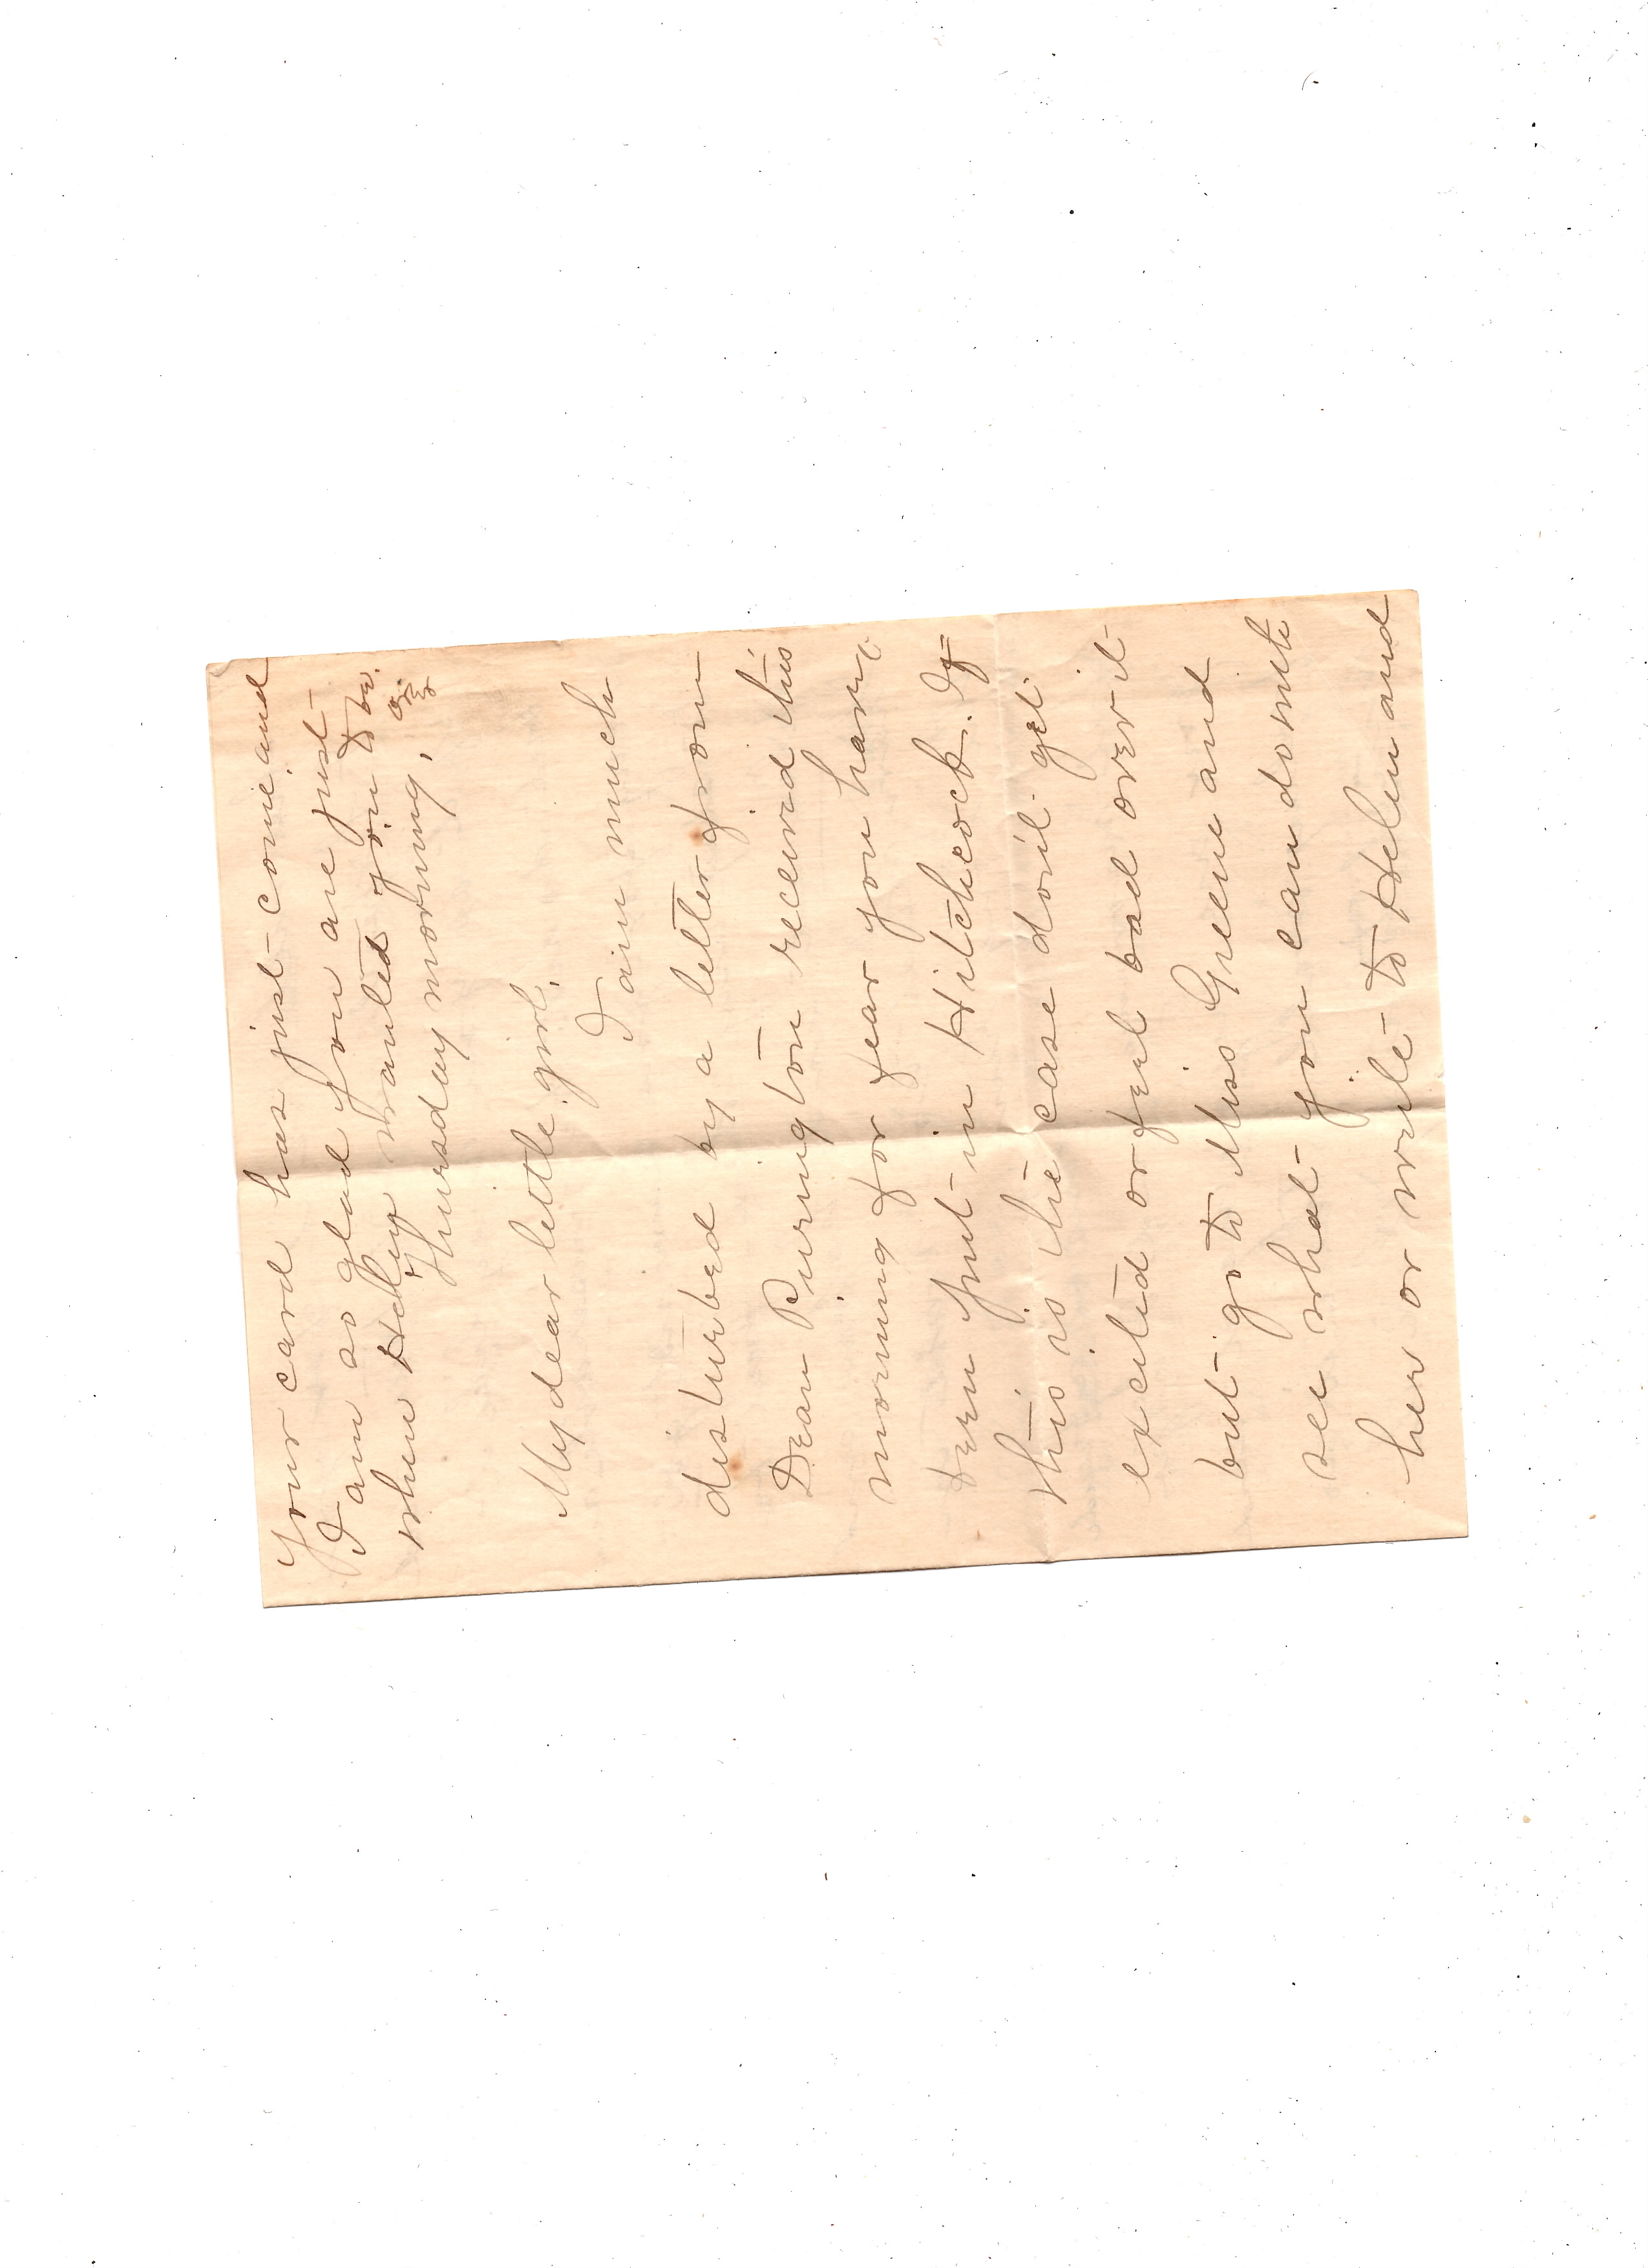 Your card has just come and
I am so glad you are just
when Helen wanted you to be.
Thursday morning,
My dear little girl,
I am much
disturbed by a letter from
Dean Purington received this
morning for fear you have
been put in Hitchcock. If
this is the case don't get
excited or feel bad over it
but go to Miss Greene and
see what you can do with
her or write to Helen and